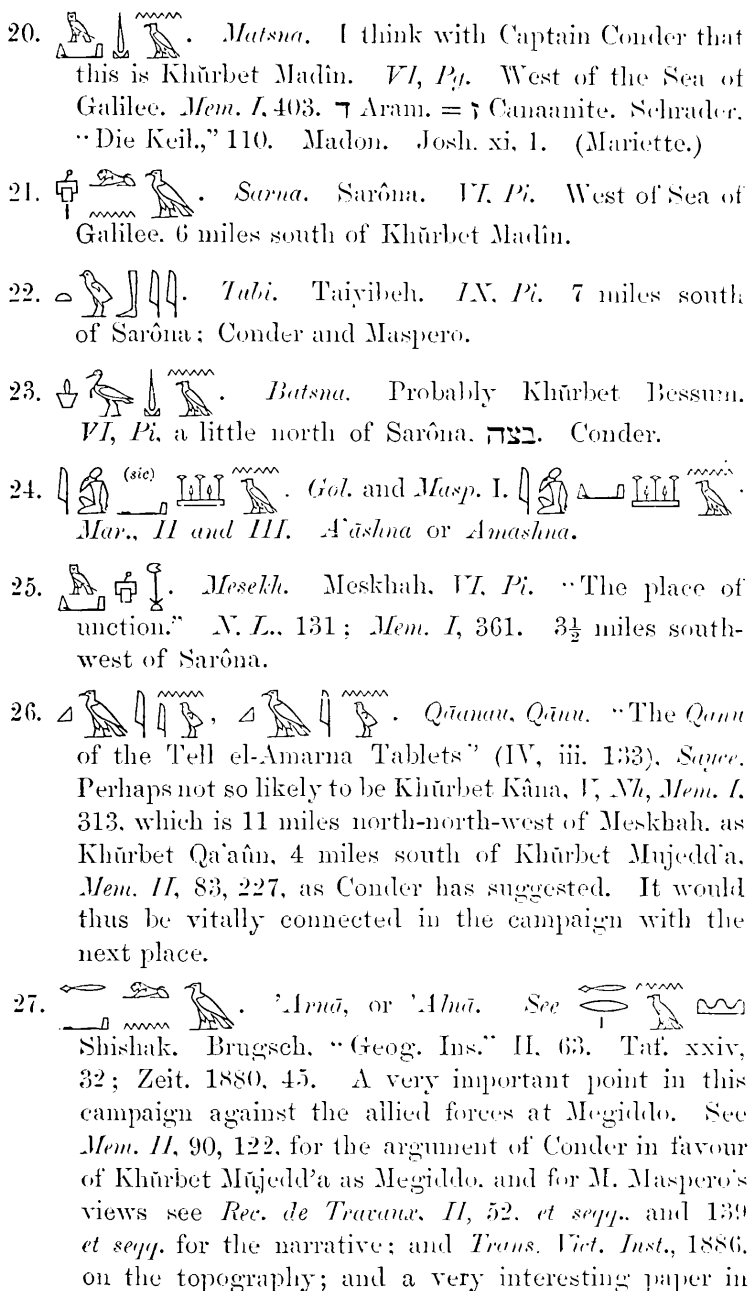 20. 𓅓𓂝𓍋𓈖𓄿. Matsna. I think with Captain Conder that
this is Khŭrbet Madîn. VI, Pg. West of the Sea of
Galilee. Mem. I, 403. ד Aram. = ז Canaanite. Schrader,
“Die Keil.,” 110. Madon. Josh. xi, 1. (Mariette.)
21. Sarna. Sarôna. VI, Pi. West of Sea of
Galilee. 6 miles south of Khŭrbet Madîn.
22. 𓏏𓅱𓃀𓇌. Tubi. Taiyibeh. IX, Pi. 7 miles south
of Sarôna; Conder and Maspero.
23. Batsna. Probably Khŭrbet Bessum.
VI, Pi, a little north of Sarôna. בצה. Conder.
24. (sic) Gol. and Masp. I.
Mar., II and III. A’āshna or Amashna.
25. Mesekh. Meskhah. VI, Pi. “The place of
unction.” N. L., 131; Mem. I, 361. 3½ miles south-
west of Sarôna.
26. Qāanau, Qānu. “The Qanu
of the Tell el-Amarna Tablets” (IV, iii. 133), Sayce.
Perhaps not so likely to be Khŭrbet Kâna, V, Nh, Mem. I,
313, which is 11 miles north-north-west of Meskhah, as
Khŭrbet Qa‘aûn, 4 miles south of Khŭrbet Mujedd‘a,
Mem. II, 83, 227, as Conder has suggested. It would
thus be vitally connected in the campaign with the
next place.
27. ’Arnā, or ’Alnā. See
Shishak. Brugsch, “Geog. Ins.” II, 63. Taf. xxiv,
32; Zeit. 1880, 45. A very important point in this
campaign against the allied forces at Megiddo. See
Mem. II, 90, 122, for the argument of Conder in favour
of Khŭrbet Mŭjedd’a as Megiddo, and for M. Maspero’s
views see Rec. de Travaux, II, 52, et seqq., and 139
et seqq. for the narrative; and Trans. Vict. Inst., 1886,
on the topography; and a very interesting paper in